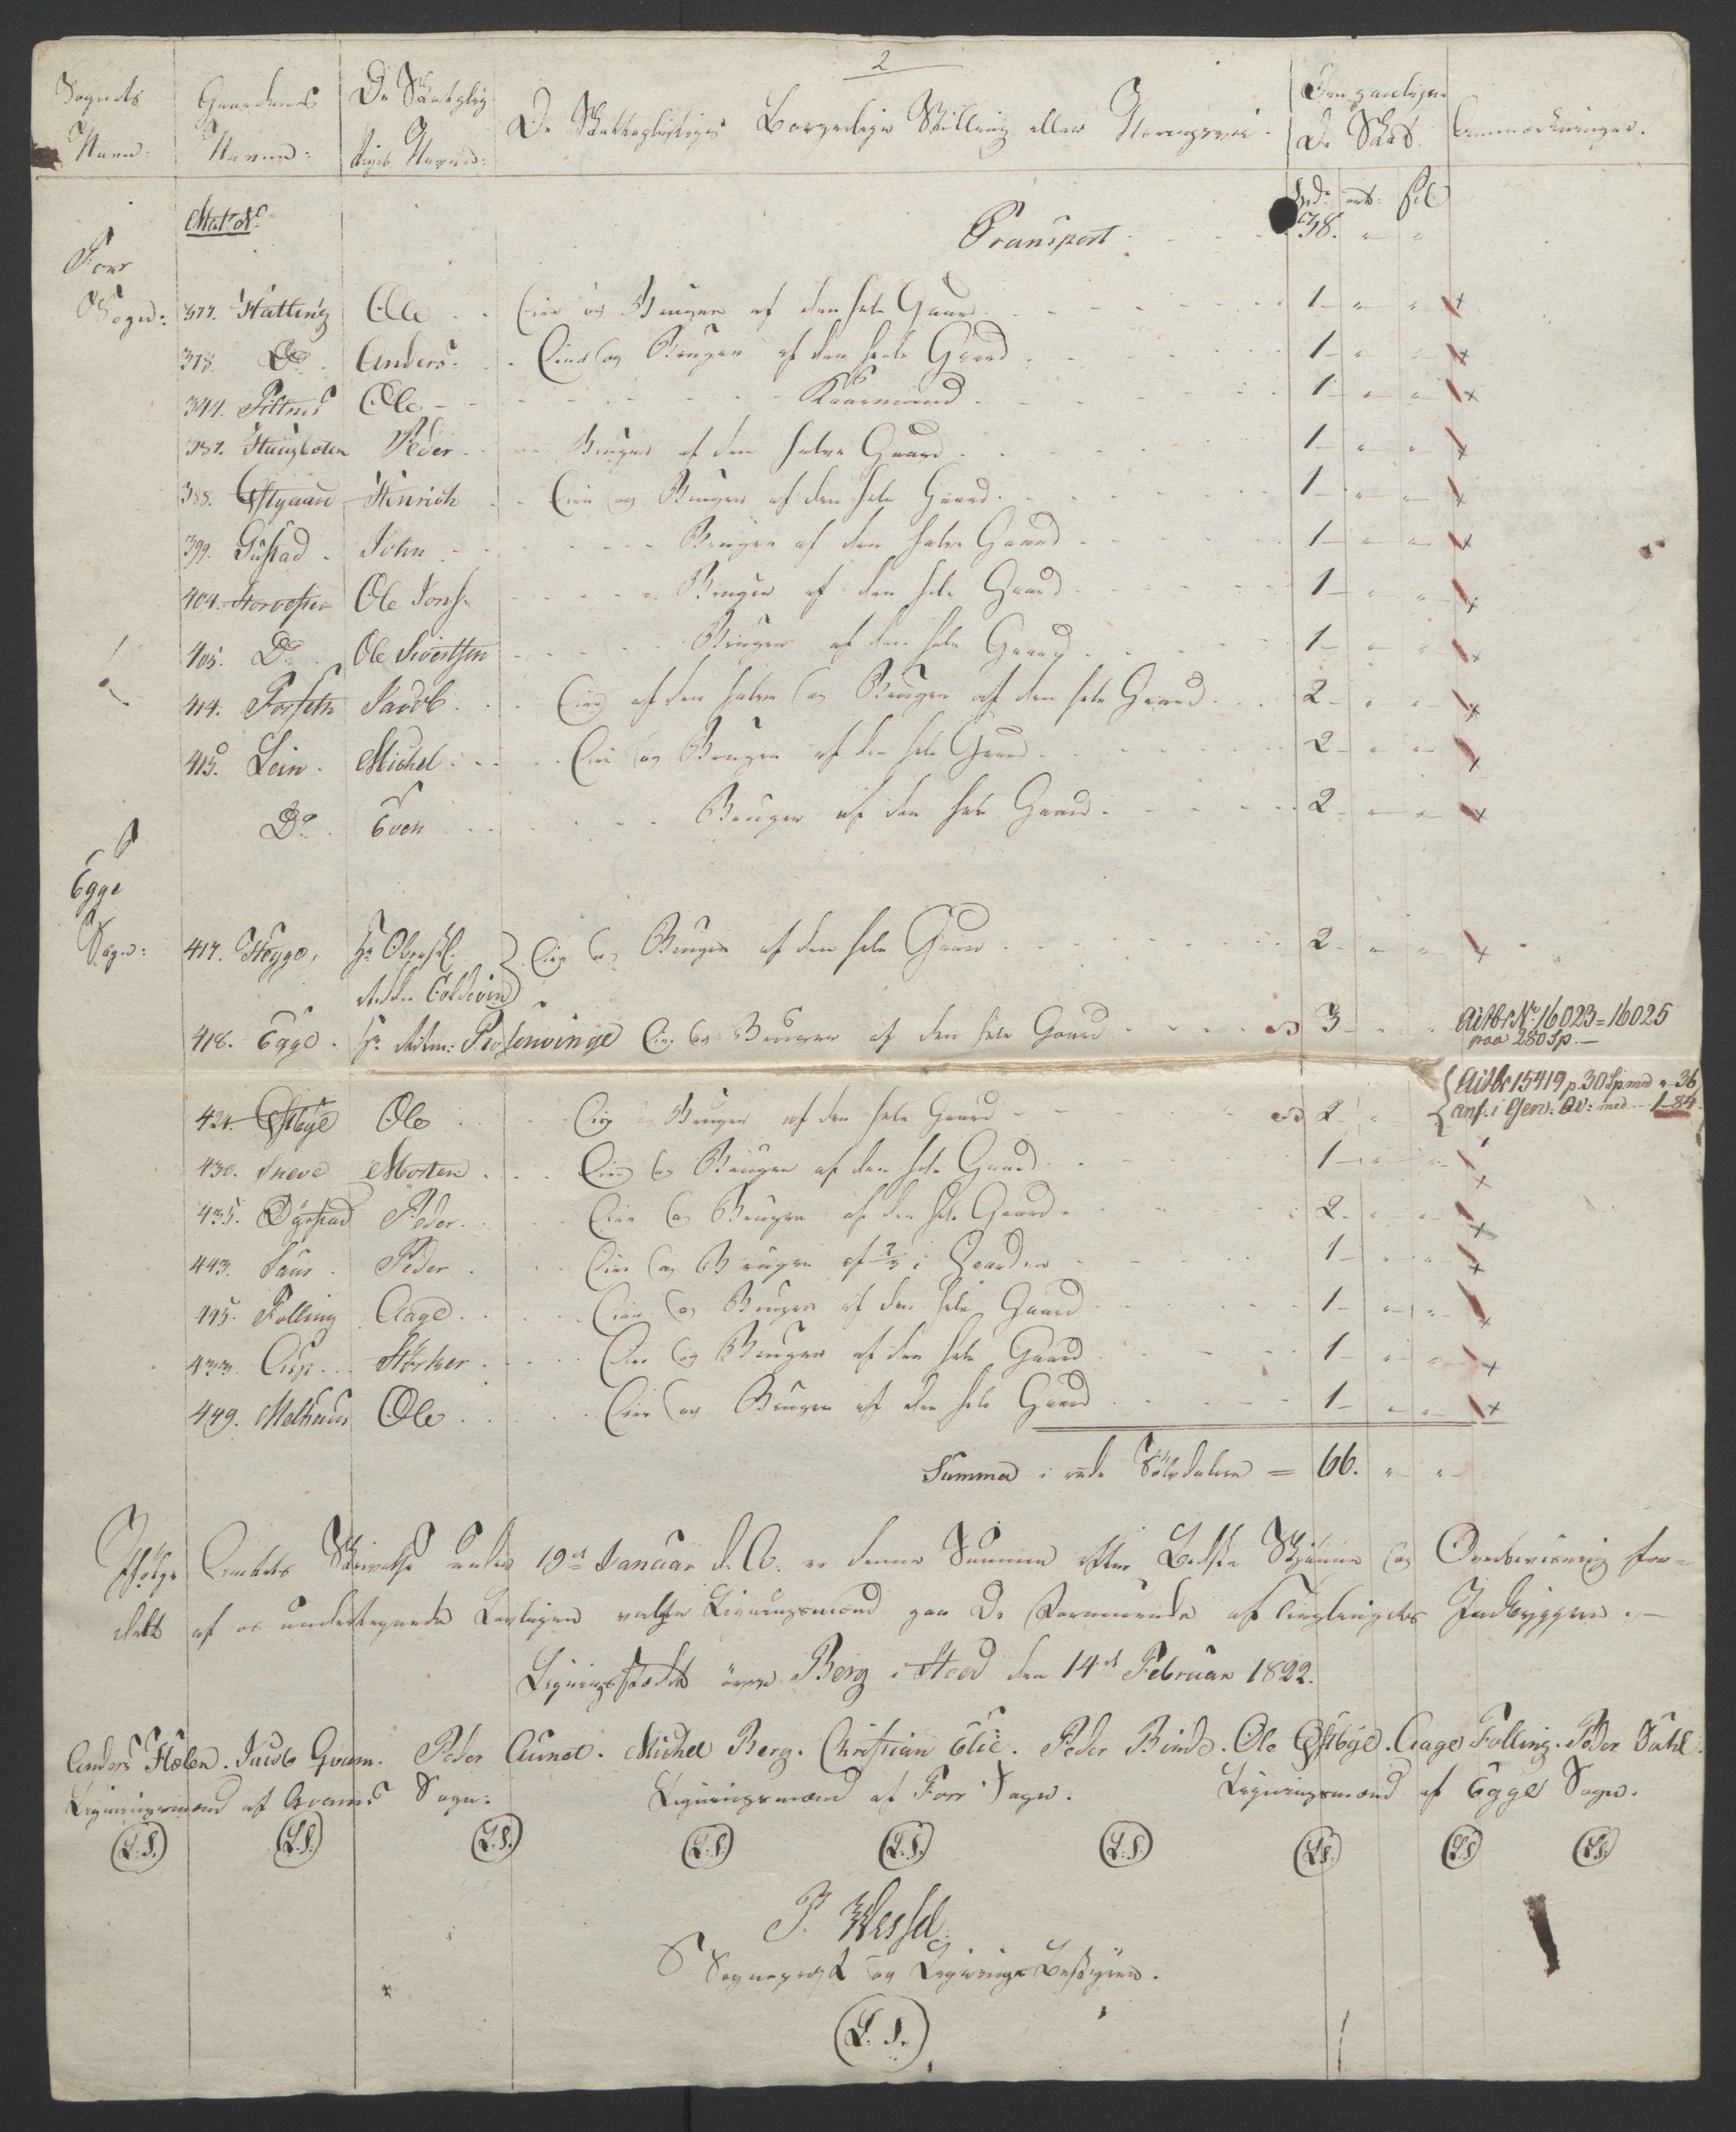 2
Sognets Navn: Gaardens Navne: De Skatteplig- tiges Navne: De Skattepligtiges Borgerlige Stilling eller Næringsvei. Den paalignede Skat. Anmærkninger.
Mat: No Spd: ort: ſkl
Transport 38. " "
For Sogn:
377. Hatling Ole Eier og Bruger af den hele Gaard 1 " "
378. Do Anders Eier og Bruger af den hele Gaard 1 " "
344. Tiltnes Ole Kaarmand 1 " "
387. Haugboten Peder Bruger af den halve Gaard 1 " "
388. Østgaard Henrich Eier og Bruger af den hele Gaard 1 " "
399. Gustad John Bruger af den halve Gaard 1 " "
404. Ole Jonſ: Bruger af den hele Gaard 1 " "
405. Do Ole Sivertſen Bruger af den hele Gaard 1 " "
414. Forſetn Jacob Eier af den halve og Bruger af den hele Gaard 2 " "
415. Lein Michel Eier og Bruger af den hele Gaard 2 " "
Do Even Bruger af den hele Gaard 2 " "
Egge Sogn:
417. Hegge, Hr Oberſtl. Coldevin Eier og Bruger af den hele Gaard 2 " "
418. Egge Hr Ritm: Roſenvinge Eier og Bruger af den hele Gaard 3 AitbrNo 16023=16025
paa 280 Sp.
421. Østbye Ole Eier og Bruger af den hele Gaard 2 " Aitbr 15419 p. 30 Sp med " 36
anf. i Gen: Qv: med 1-84
430. Sneve Morten Eier og Bruger af den hele Gaard 1 " "
435. Dyrſtad Peder Eier og Bruger af den hele Gaard 2 " "
443. Saur Peder Eier og Bruger af 2/3 i Gaarden 1 " "
445. Følling Aage Eier og Bruger af den hele Gaard 1 " "
433. Størker Eier og Bruger af den hele Gaard 1 " "
449. Melhuus Ole Eier og Bruger af den hele Gaard 1 " "
Summa i rede Sölvdalere = 66. " "
Ifølge Amtets Skrivelse under 19de Januar d. A. er denne Summa efter Bedste Skjönne og Overbeviisning for=
delt af os undertegnede Lovligen valgte Ligningsmænd paa De Formuende af Tinglaugets Indbyggere.
Ligningsſtædet övre Berg i Stod den 14de Februar 1822.
Anders Hælen. Jacob Qvam. Peder Aunet. Michel Berg. Chriſtian Elie. Peder Binde. Ole Østbye. Aage Følling. Peder Dahl.
Ligningsmænd af Qvams Sogn: Ligningsmænd af For Sogn. Ligningsmænd af Egge Sogn.
(L.S.) (L.S.) (L.S.) (L.S.) (L.S.) (L.S.) (L.S.) (L.S.) (L.S.)
P. Weſſel
Sogneprest og Lignings Beſtyrer.
(L.S.)